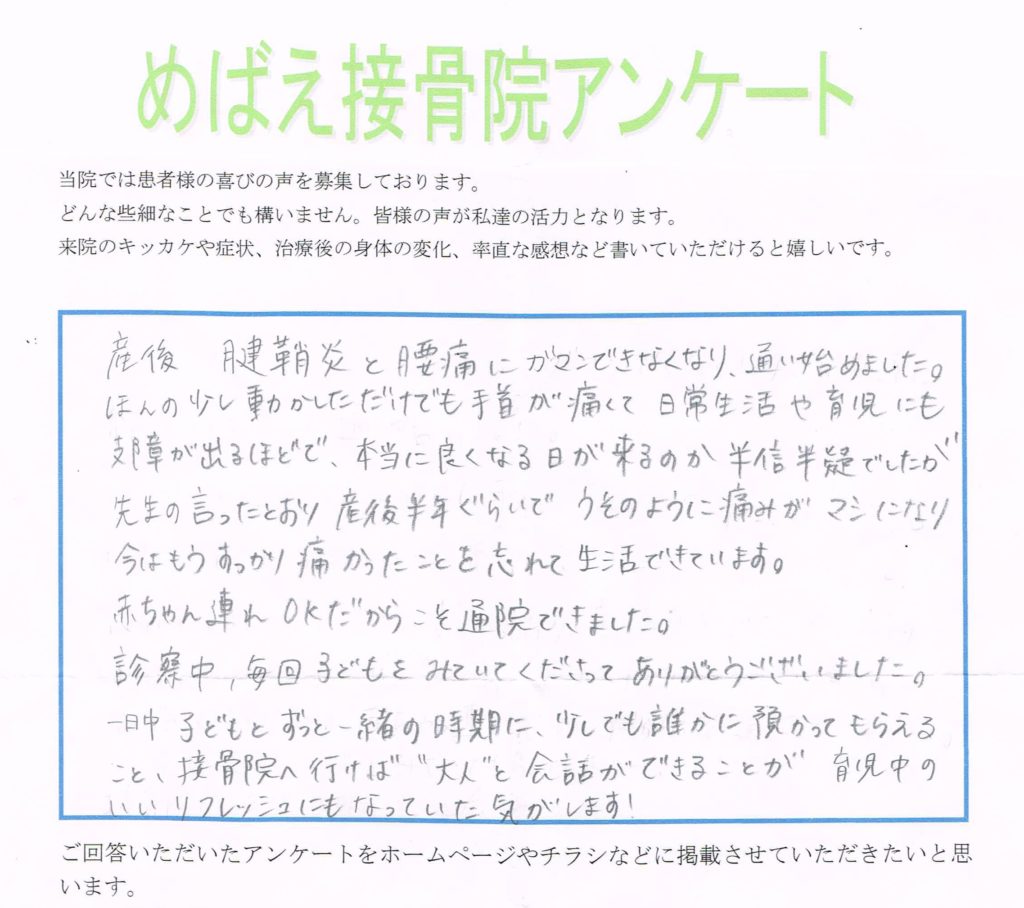 めばえ接骨院アンケート
当院では患者様の喜びの声を募集しております。
どんな些細なことでも構いません。皆様の声が私達の活力となります。
来院のキッカケや症状、治療後の身体の変化、率直な感想など書いていただけると嬉しいです。
産後 腱鞘炎と腰痛にガマンできなくなり、通い始めました。
ほんの少し動かしただけでも手首が痛くて 日常生活や育児にも
支障が出るほどで、本当に良くなる日が来るのか半信半疑でしたが
先生の言ったとおり産後半年ぐらいでうそのように痛みがマシになり
今はもうすっかり痛かったことを忘れて生活できています。
赤ちゃん連れOKだからこそ通院できました。
診察中、毎回子どもをみていてくださってありがとうございました。
一日中子どもとずっと一緒の時期に、少しでも誰かに預かってもらえる
こと、接骨院へ行けば"大人"と会話ができることが育児中の
いいリフレッシュにもなっていた気がします!
ご回答いただいたアンケートをホームページやチラシなどに掲載させていただきたいと思
います。